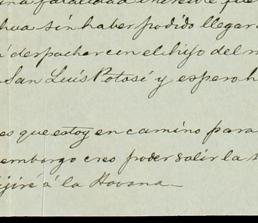 una fatalidad
hua sin haber podido llegar
despachar con el hijo del m
San Luis Potosé y espero h
es que estoy en camino para
embargo creo poder salir la s
ijiré á la Havana